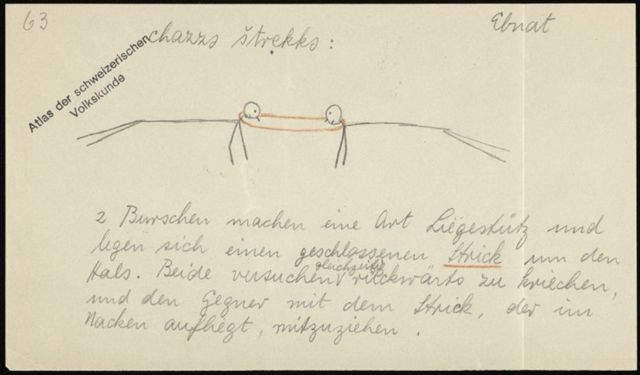 63
Ebnat
chazzs štrekks:
Atlas der schweizerischen
Volkskunde
2 Burschen machen eine Art Liegestütz und
legen sich einen geschlossenen Strick um den
Hals. Beide versuchen gleichzeitig rückwärts zu kriechen,
und den Gegner mit dem Strick, der im
Nacken aufliegt, mitzuziehen.